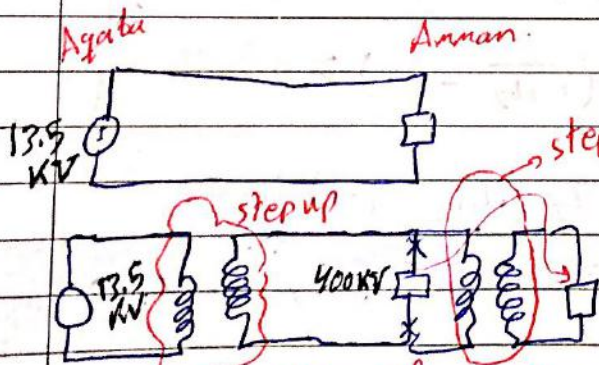 Aqaba Amman.
13.5
KV
step
step up
13.5
KV
400KV